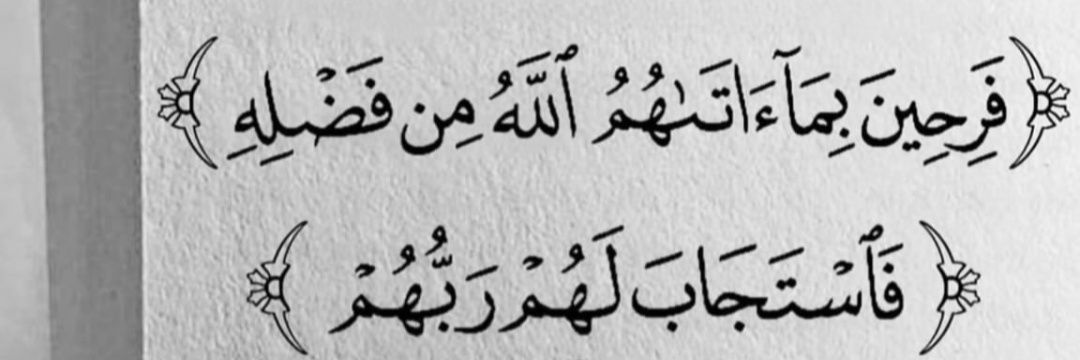 ﴿فَرِحِينَ بِمَآ ءَاتَىٰهُمُ ٱللَّهُ مِن فَضْلِهِ﴾
﴿فَٱسْتَجَابَ لَهُمْ رَبُّهُمْ﴾